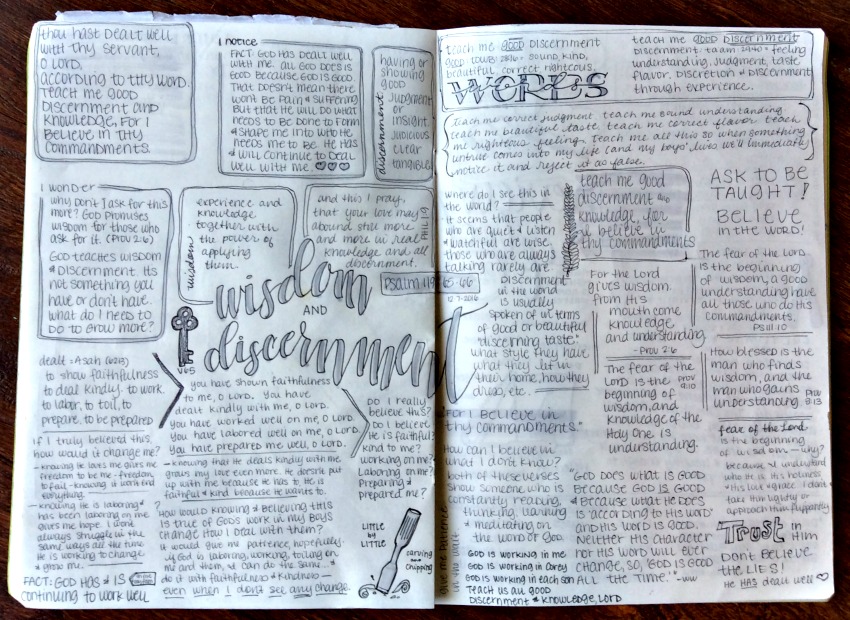 thou hast dealt well
with thy servant,
O LORD,
according to thy word.
Teach me good
discernment and
knowledge, for I
believe in thy
commandments.
I notice
FACT: God has dealt well
with me. All God does is
good because God is good.
That doesn't mean there
won't be pain & suffering
but that He will do what
needs to be done to form
& shape me into who He
needs me to be. He has
& will continue to deal
well with me
discernment
having or
showing
good
judgment
or
insight.
judicious
clear
tangible
I wonder
why don't I ask for this
more? God promises
wisdom for those who
ask for it. (Prov 2:6)
God teaches wisdom
& discernment. Its
not something you
have or don't have.
What do I need to
do to grow more?
wisdom:
experience and
knowledge
together with
the power of
applying
them.
and this I pray,
that your love may
abound still more
and more in real
knowledge and all
discernment.
Phil 1:9
Psalm 119:65-66
wisdom
AND
discernment
12-7-2016
V65
dealt = Asah (6213)
to show faithfulness
to deal kindly. to work.
to labor, to toil, to
prepare. to be prepared
you have shown faithfulness
to me, O Lord. You have
dealt kindly with me, O Lord.
You have worked well on me, O Lord.
You have labored well on me, O Lord.
You have prepared me well, O Lord.
Do I really
believe this?
Do I believe
He is faithful?
kind to me?
working on me?
Laboring on me?
Preparing &
prepared me?
if I truly believed this,
how would it change me?
- knowing He loves me gives me
freedom to be me - freedom
to fail - knowing it won't end
everything.
- knowing He is laboring &
has been laboring on me
gives me hope. I won't
always struggle in the
same ways all the time
He is working to change
& grow me.
- knowing that He deals kindly with me
grows my love even more. He doesn't put
up with me because He has to. He is
faithful & kind because He wants to.
How would knowing & believing this
is true of God's work in my boys
change how I deal with them?
It would give me patience, hopefully.
if God is laboring, working, toiling on
me and them, & can do the same... &
do it with faithfulness & kindness —
even when I don't see any change.
FACT: GOD HAS & IS
continuing to work well
LITTLE
by
LITTLE
carving
and
chipping
teach me good discernment
good towb 2896 = sound, kind,
beautiful, correct, righteous.
WORDS
teach me good discernment
discernment taam 2940 = feeling
understanding, judgment, taste
flavor. discretion & discernment
through experience.
teach me correct judgment teach me sound understanding
teach me beautiful taste teach me correct flavor teach
me righteous feeling. Teach me all this so when something
untrue comes into my life (and my boys' lives we'll immediately
notice it and reject it as false.
where do I see this in
the world?
it seems that people
who are quiet & listen
& watchful are wise.
those who are always
talking rarely are
Discernment
in the world
is usually
spoken of in terms
of good or beautiful
"discerning taste"
what style they have
what they let in
their home, how they
dress, etc.
teach me good
discernment
knowledge, for
I believe in
thy commandments
ASK TO BE
TAUGHT!
BELIEVE
in the WORD!
For the Lord
gives wisdom.
From His
mouth come
knowledge
and understanding
- Prov 2:6
The fear of the Lord
is the beginning
of wisdom, a good
understanding have
all those who do His
commandments.
Ps 111:10
The fear of the
Lord is the
beginning of
wisdom, and
knowledge of the
Holy One is
understanding.
Prov 9:10
How blessed is the
man who finds
wisdom, and the
man who gains
understanding.
"For I BELIEVE in
thy commandments."
How can I believe in
what I don't know?
both of these verses
show someone who is
constantly reading,
thinking, learning
& meditating on
the word of God.
give me patience
in the wait
God is working in me
God is working in Corey
God is working in each son
Teach us all good
discernment & knowledge, Lord
"God does what is good
because God is good
& because what He does
is 'according to His word'
and His word is good.
Neither His character
nor His word will ever
change, so, 'God is good
all the time.'" - ww
fear of the Lord
is the beginning
of wisdom — why?
because I understand
who He is & His holiness
& His love & grace. I don't
take Him lightly or
approach Him flippantly
Trust in
Him
DON'T BELIEVE
the LIES!
He HAS dealt well